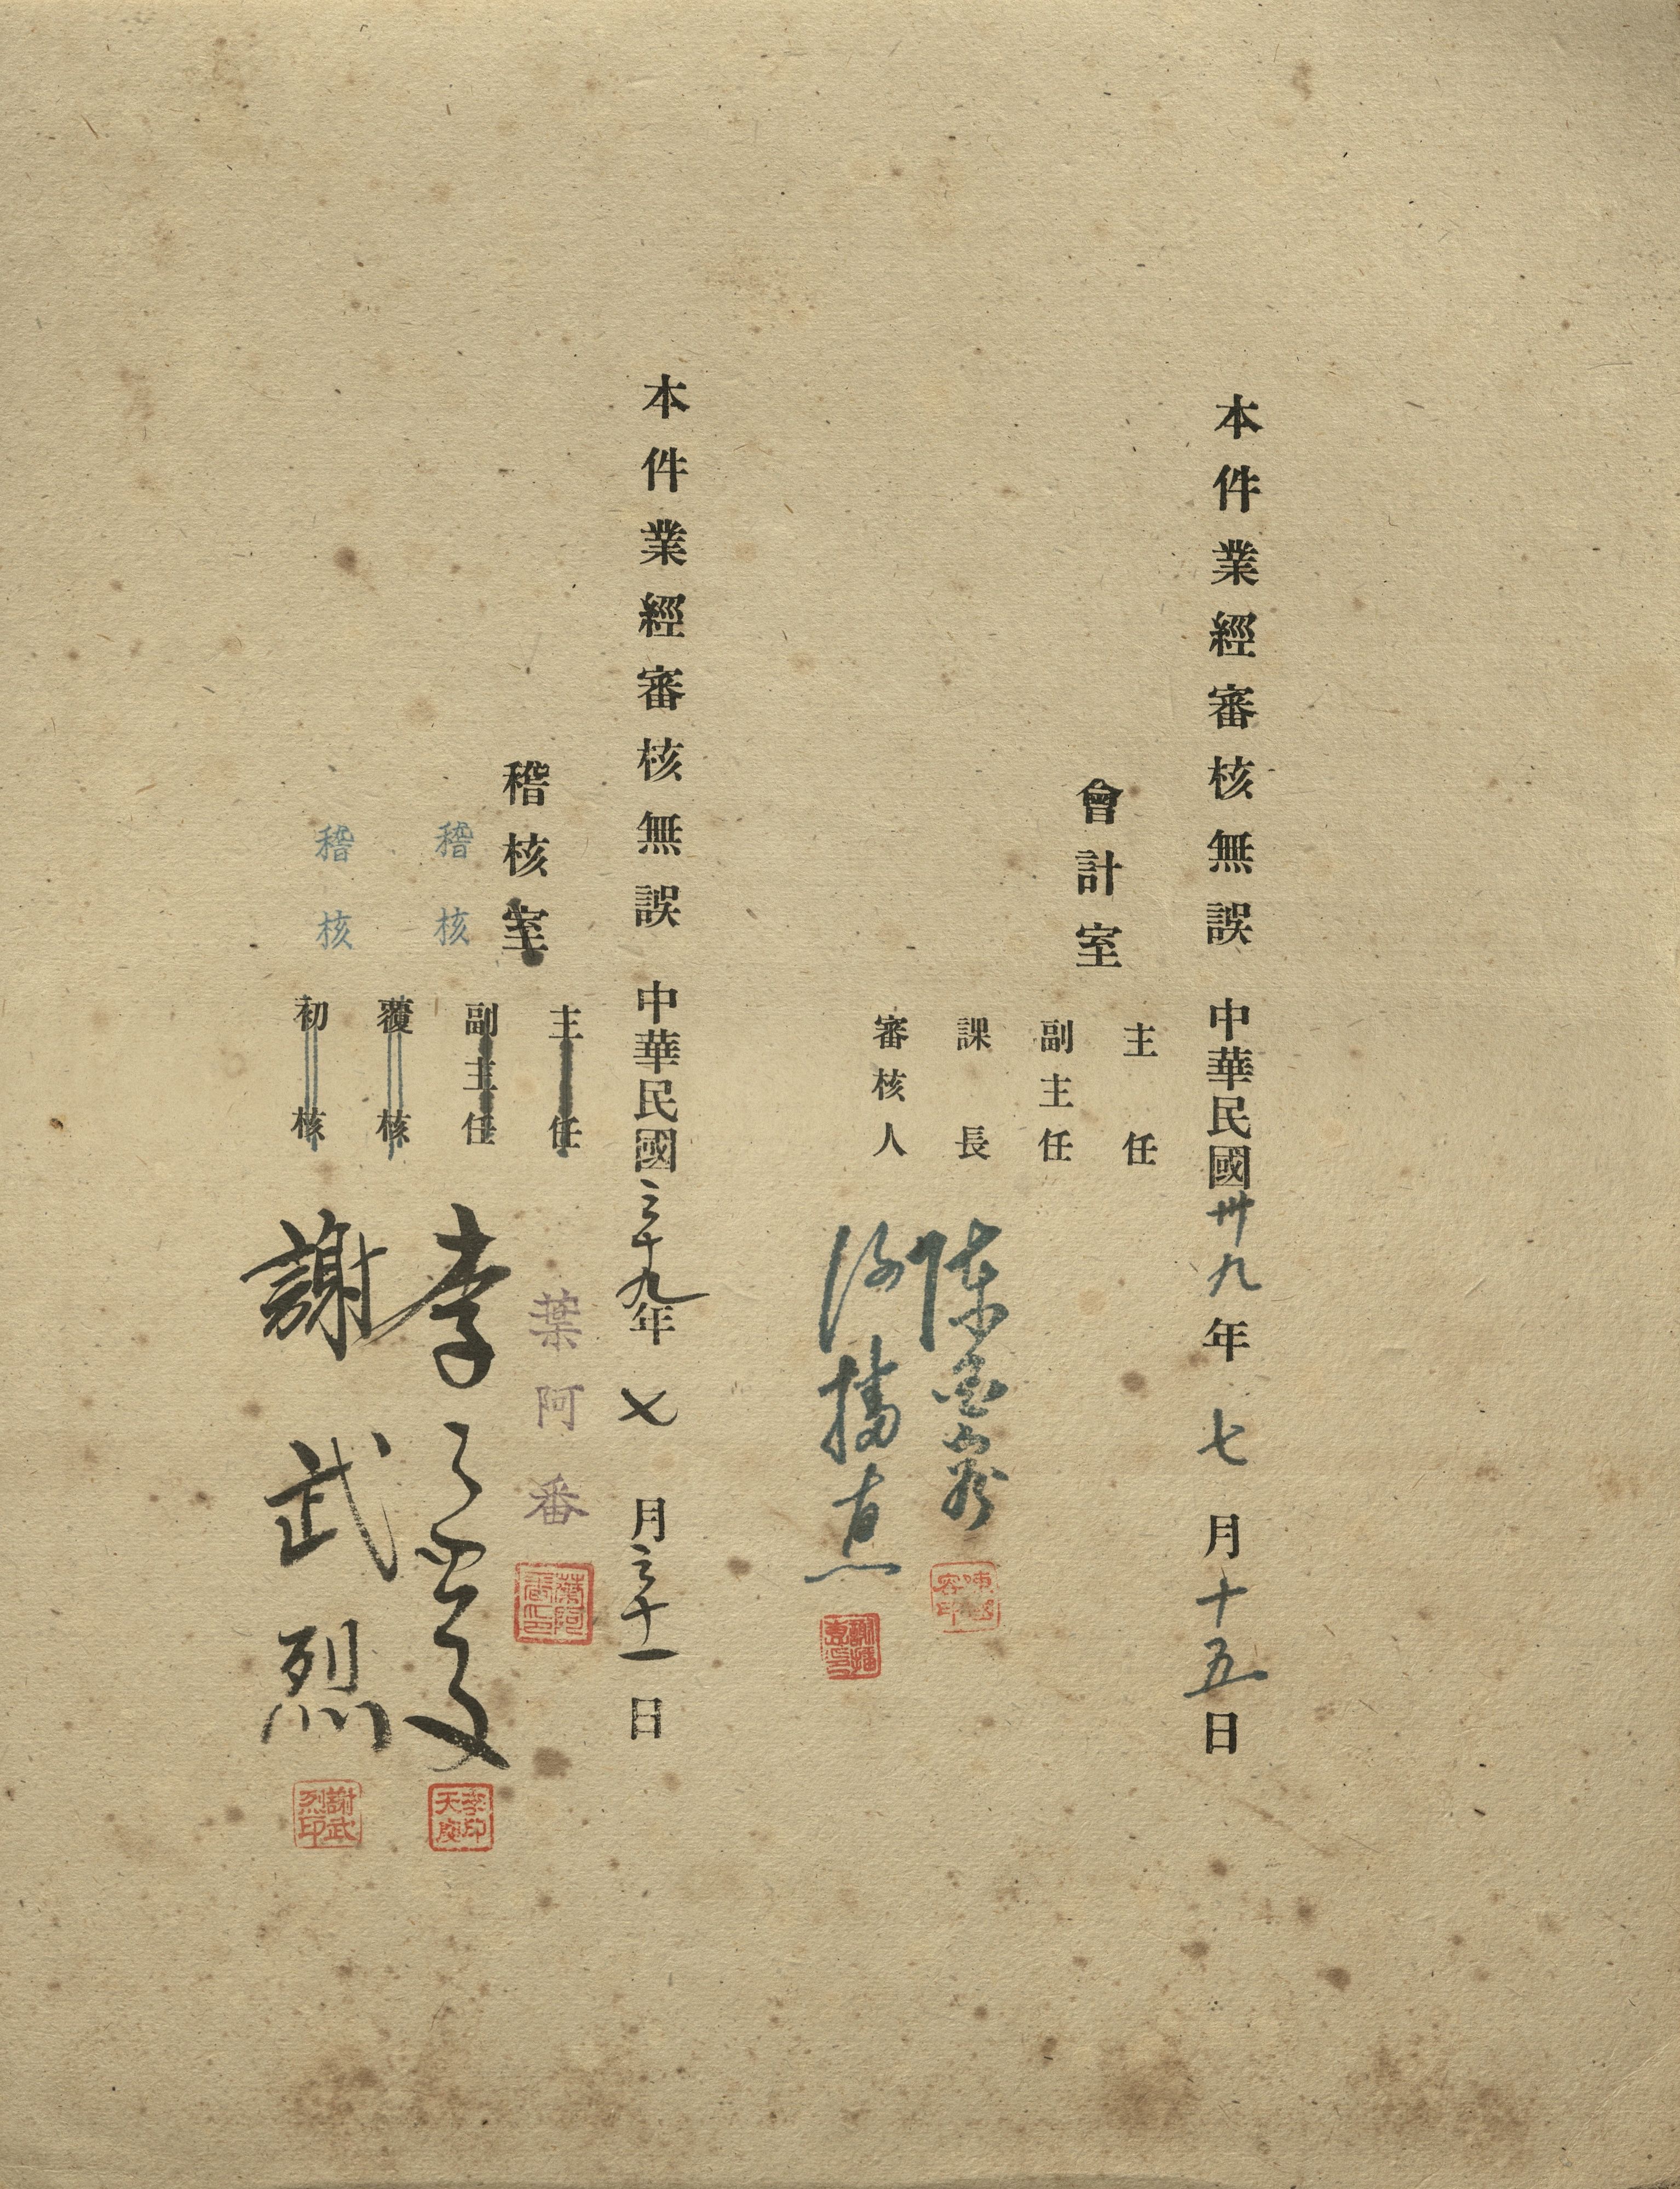 本件業經審核無誤 中華民國卅九年七月十五日
會計室
主任
副主任
課長
陳
審核人
謝播
本件業經審核無誤 中華民國三十九年七月三十一日
稽核室
主任
葉阿番
葉阿番印
副主任
稽核
覆核
李天
李印天
稽核
初核
謝武烈
謝武烈印